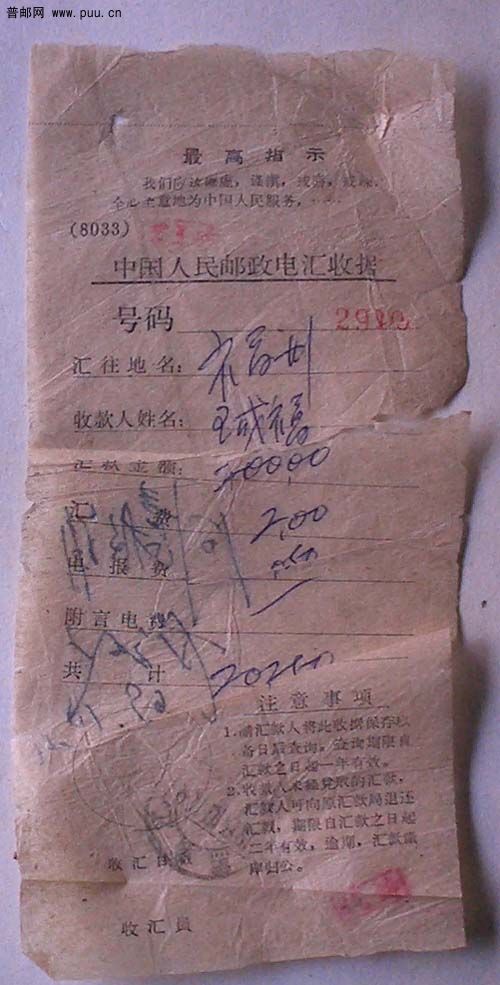 普邮网 www.puu.cn
最高指示
我们应该谦虚，谨慎，戒骄，戒躁，
全心全意地为中国人民服务，……
(8033)
中国人民邮政电汇收据
号码 2910
汇往地名：
收款人姓名：王成福
汇款金额：200.00
汇费 2.00
电报费
附言电费
共计
注意事项
1.请汇款人将此收据保存以
备日后查询。查询期限自
汇款之日起一年有效。
2.收款人未经兑取的汇款，
汇款人可向原汇款局退还
汇款，期限自汇款之日起
二年有效，逾期，汇款做
库归公。
收汇日戳
收汇员